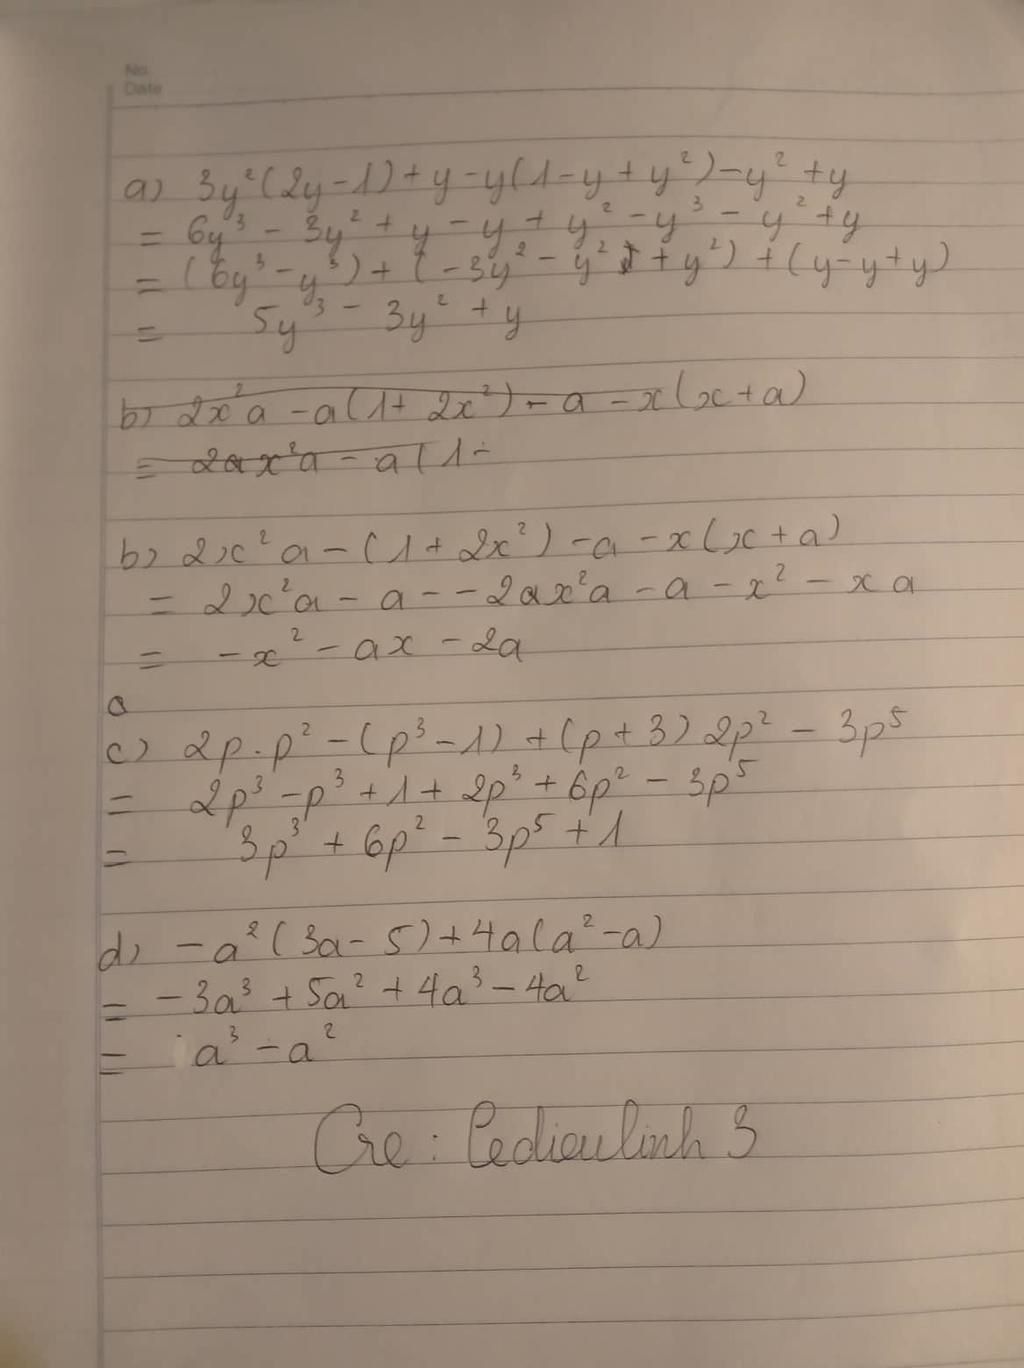 No.
Date
a) 3y²(2y-1)+y-y(1-y+y²)-y²+y
= 6y³ - 3y² + y - y + y² - y³ - y² + y
= (6y³-y³)+(-3y²-y²+y²)+(y-y+y)
= 5y³ - 3y² + y
b) 2x²a -a(1+2x²)-a-x(x+a)
= 2ax²a - a(1-
b) 2x²a-(1+2x²)-a-x(x+a)
= 2x²a - a - -2ax²a - a - x² - xa
= -x² - ax - 2a
a
c) 2p.p² -(p³-1)+(p+3)2p² - 3p⁵
= 2p³ -p³ +1+ 2p³ + 6p² - 3p⁵
= 3p³ + 6p² - 3p⁵ + 1
d) -a²(3a-5)+4a(a²-a)
= -3a³ + 5a² + 4a³ - 4a²
= a³ - a²
Cre: Ledieulinh 3